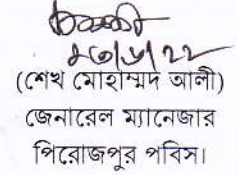 ২৩/৬/২২
(শেখ মোহাম্মদ আলী)
জেনারেল ম্যানেজার
পিরোজপুর পবিস।